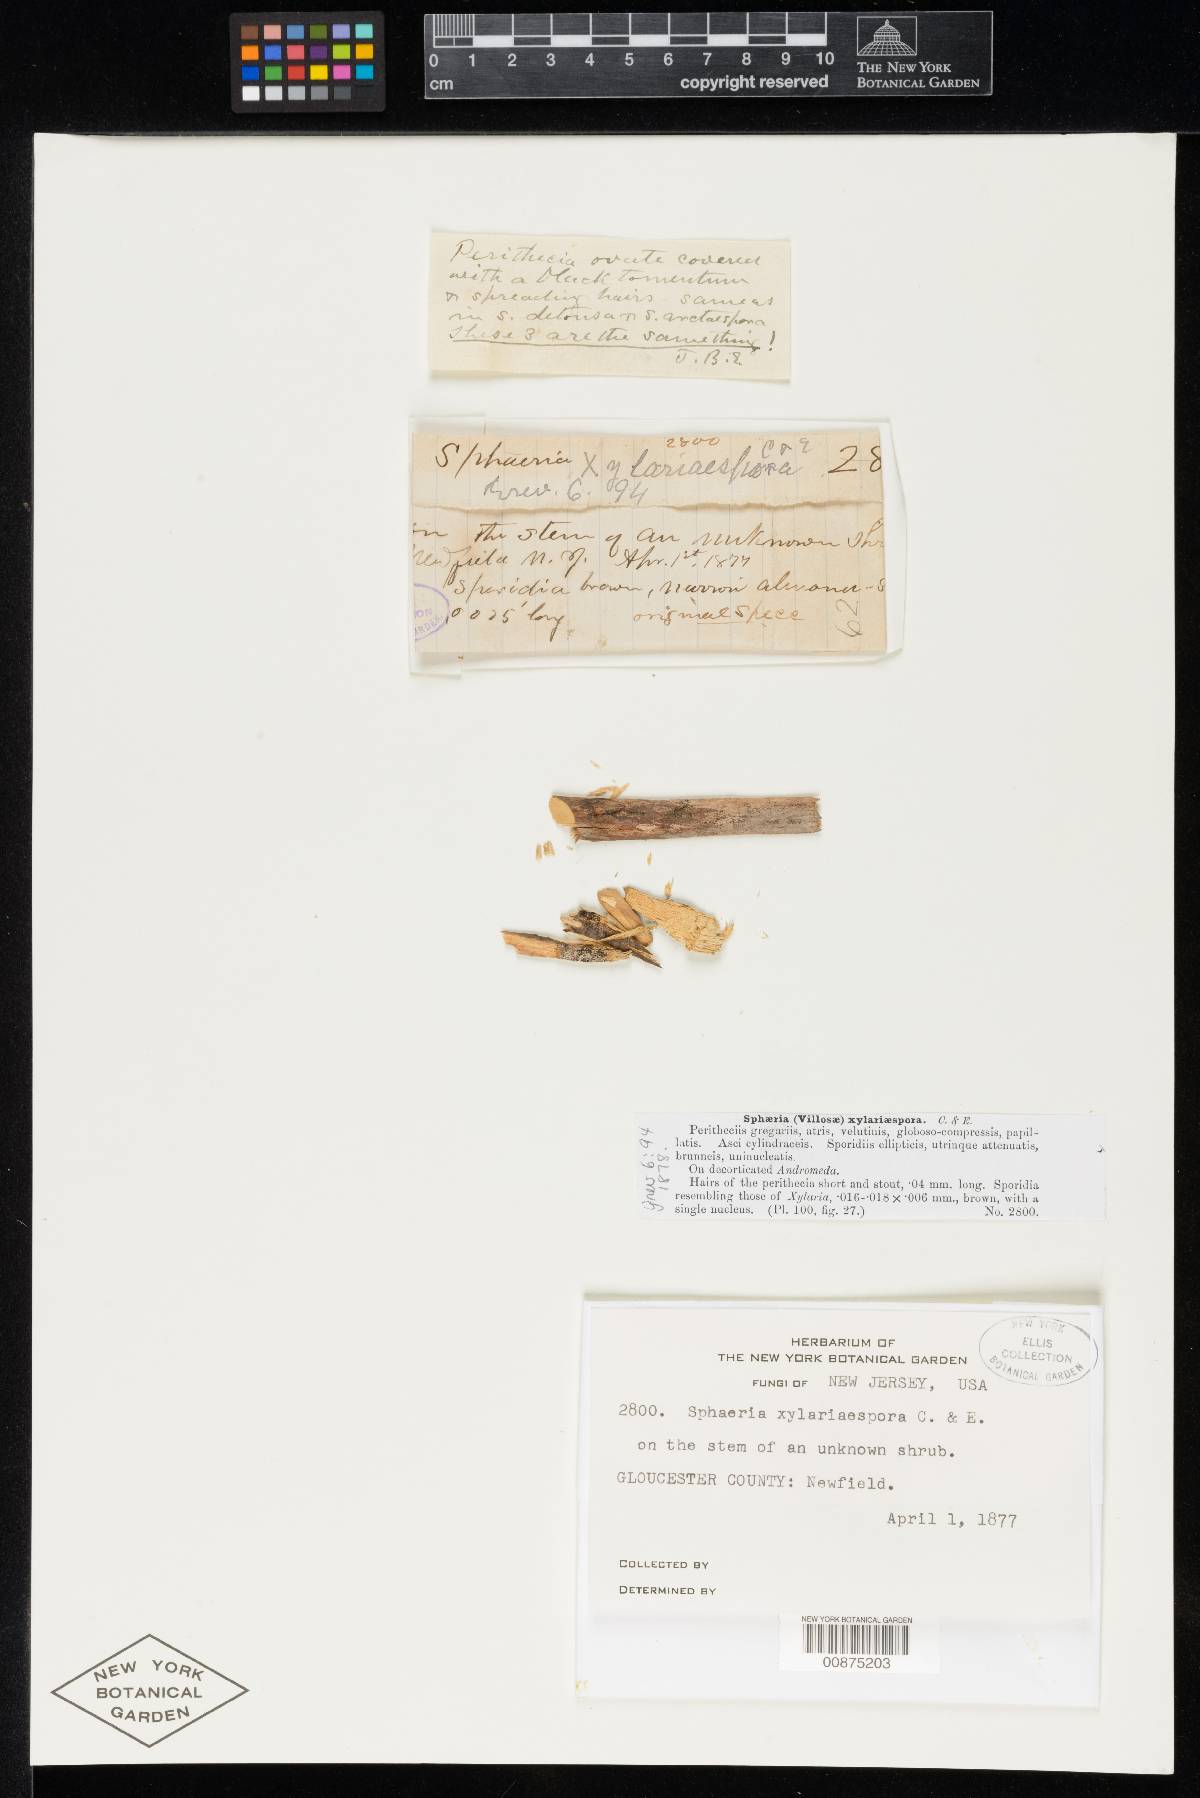 0 1 2 3 4 5 6 7 8 9 10
cm
copyright reserved
THE NEW YORK
BOTANICAL GARDEN
Perithecia ovate covered
with a black tomentum
& spreading hairs same as
in S. detonsa & S. arctaespora
These 3 are the same thing!
J. B. E.
2800
Sphaeria Xylariaespora C & E 28
Grev. 6. 94
on the stem of an unknown Shr
Newfield N. J. Apr. 1st 1877
Sporidia brown, narrow
long original Spece
62
Sphæria (Villosæ) xylariæspora. C. & E.
Peritheciis gregariis, atris, velutinis, globoso-compressis, papil-
latis. Asci cylindraceis. Sporidiis ellipticis, utrinque attenuatis,
brunneis, uninucleatis.
On decorticated Andromeda.
Hairs of the perithecia short and stout, ·04 mm. long. Sporidia
resembling those of Xylaria, ·016-·018 × ·006 mm., brown, with a
single nucleus. (Pl. 100, fig. 27.) No. 2800.
Grev 6: 94
1878.
NEW YORK
ELLIS
COLLECTION
BOTANICAL GARDEN
HERBARIUM OF
THE NEW YORK BOTANICAL GARDEN
FUNGI OF NEW JERSEY, USA
2800. Sphaeria xylariaespora C. & E.
on the stem of an unknown shrub.
GLOUCESTER COUNTY: Newfield.
April 1, 1877
COLLECTED BY
DETERMINED BY
NEW YORK BOTANICAL GARDEN
00875203
NEW YORK
BOTANICAL
GARDEN